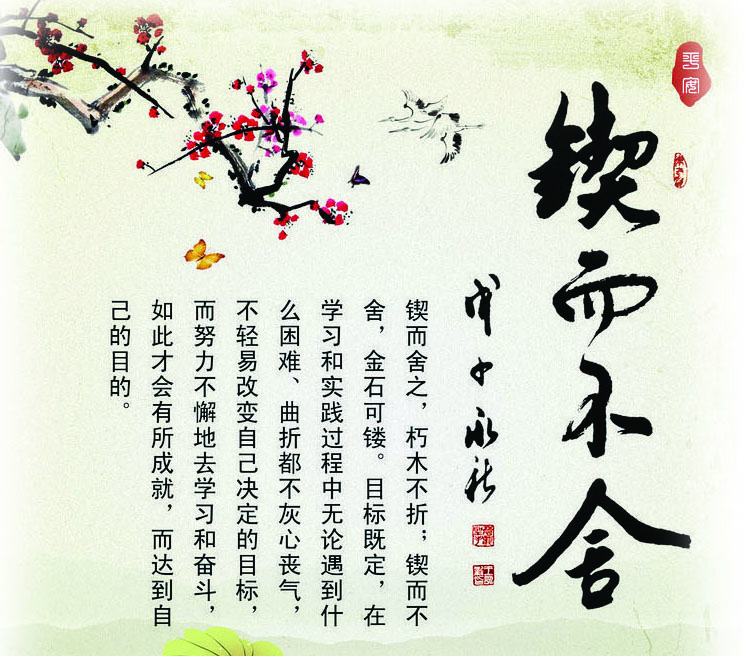 平安
锲而不舍
戊子
锲而舍之，朽木不折；锲而不
舍，金石可镂。目标既定，在
学习和实践过程中无论遇到什
么困难、曲折都不灰心丧气，
不轻易改变自己决定的目标，
而努力不懈地去学习和奋斗，
如此才会有所成就，而达到自
己的目的。